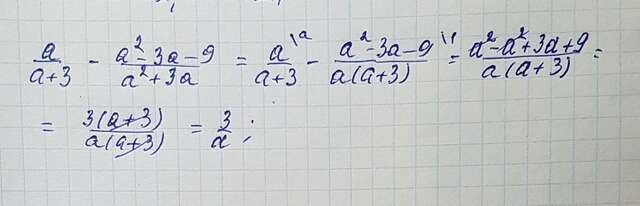 a/(a+3) - (a²-3a-9)/(a²+3a) = a\a/(a+3) - (a²-3a-9)\1/(a(a+3)) = (a²-a²+3a+9)/(a(a+3)) =
= 3(a+3)/(a(a+3)) = 3/a ;